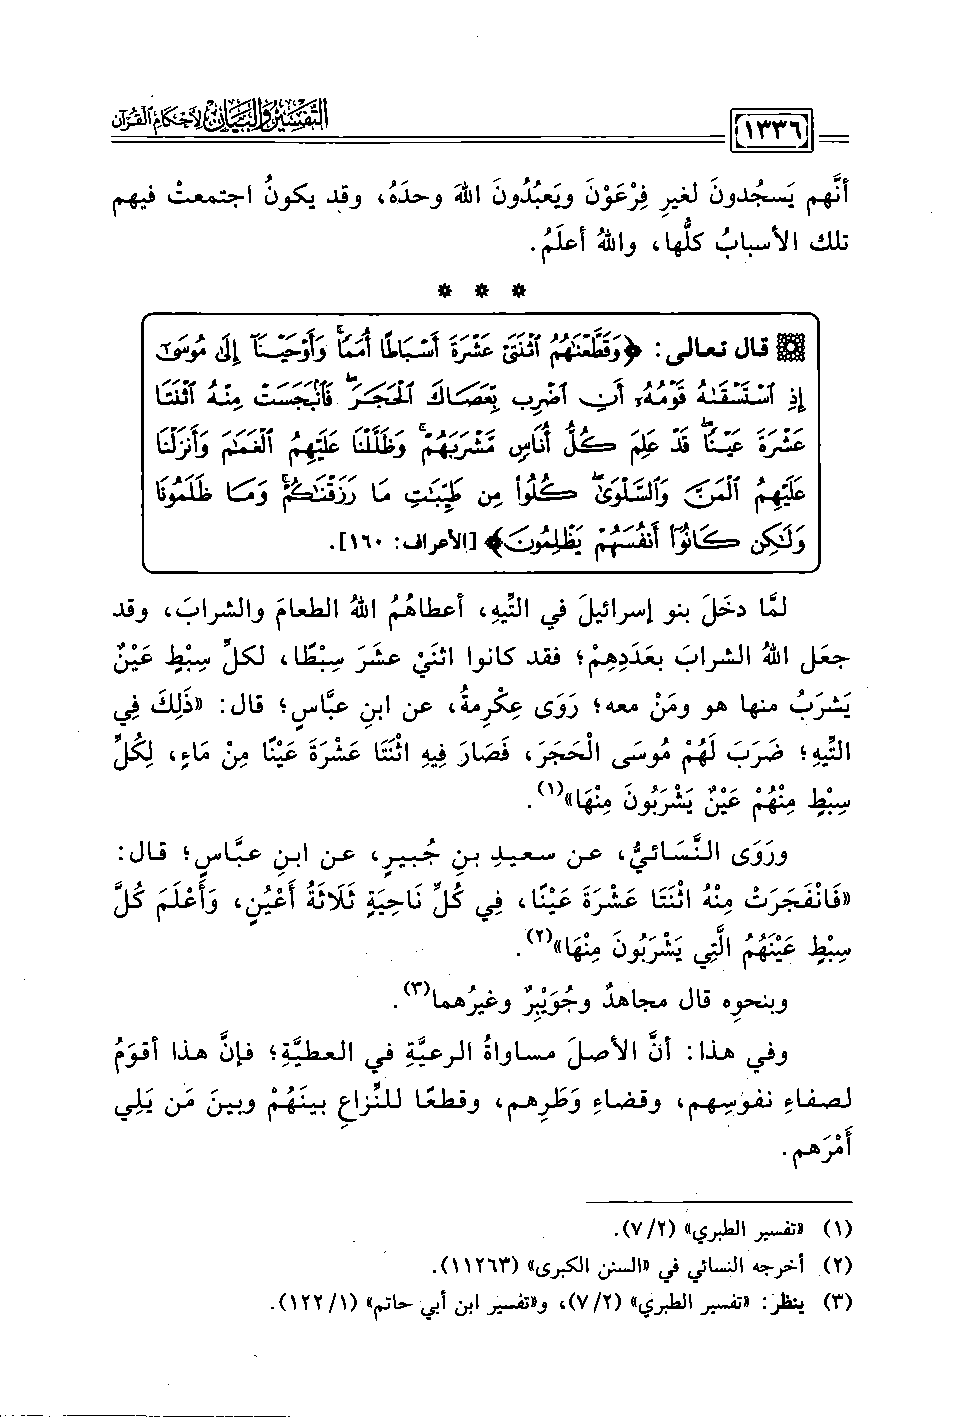 التفسير والبيان لأحكام القرآن
١٣٣٦
أنَّهم يَسجُدونَ لغيرِ فِرْعَوْنَ ويَعبُدُونَ اللهَ وحدَهُ، وقد يكونُ اجتمعتْ فيهم
تلك الأسبابُ كلُّها، واللهُ أعلَمُ.
* * *
قال تعالى: ﴿وَقَطَّعْنَٰهُمُ ٱثْنَتَىْ عَشْرَةَ أَسْبَاطًا أُمَمًا ۚ وَأَوْحَيْنَآ إِلَىٰ مُوسَىٰٓ
إِذِ ٱسْتَسْقَىٰهُ قَوْمُهُۥٓ أَنِ ٱضْرِب بِّعَصَاكَ ٱلْحَجَرَ ۖ فَٱنۢبَجَسَتْ مِنْهُ ٱثْنَتَا
عَشْرَةَ عَيْنًا ۖ قَدْ عَلِمَ كُلُّ أُنَاسٍ مَّشْرَبَهُمْ ۚ وَظَلَّلْنَا عَلَيْهِمُ ٱلْغَمَٰمَ وَأَنزَلْنَا
عَلَيْهِمُ ٱلْمَنَّ وَٱلسَّلْوَىٰ ۖ كُلُوا۟ مِن طَيِّبَٰتِ مَا رَزَقْنَٰكُمْ ۚ وَمَا ظَلَمُونَا
وَلَٰكِن كَانُوٓا۟ أَنفُسَهُمْ يَظْلِمُونَ﴾ [الأعراف: ١٦٠].
لمَّا دخَلَ بنو إسرائيلَ في التِّيهِ، أعطاهُمُ اللهُ الطعامَ والشرابَ، وقد
جعَل اللهُ الشرابَ بعَدَدِهِمْ؛ فقد كانوا اثنَيْ عشَرَ سِبْطًا، لكلِّ سِبْطٍ عَيْنٌ
يَشرَبُ منها هو ومَنْ معه؛ رَوَى عِكْرِمةُ، عن ابنِ عبَّاسٍ؛ قال: «ذَلِكَ فِي
التِّيهِ؛ ضَرَبَ لَهُمْ مُوسَى الْحَجَرَ، فَصَارَ فِيهِ اثْنَتَا عَشْرَةَ عَيْنًا مِنْ مَاءٍ، لِكُلِّ
سِبْطٍ مِنْهُمْ عَيْنٌ يَشْرَبُونَ مِنْهَا»(١).
ورَوَى النَّسَائيُّ، عن سعيدِ بنِ جُبيرٍ، عن ابنِ عبَّاسٍ؛ قال:
«فَانْفَجَرَتْ مِنْهُ اثْنَتَا عَشْرَةَ عَيْنًا، فِي كُلِّ نَاحِيَةٍ ثَلَاثَةُ أَعْيُنٍ، وَأَعْلَمَ كُلَّ
سِبْطٍ عَيْنَهُمُ الَّتِي يَشْرَبُونَ مِنْهَا»(٢).
وبنحوِه قال مجاهدٌ وجُوَيْبِرٌ وغيرُهما(٣).
وفي هذا: أنَّ الأصلَ مساواةُ الرعيَّةِ في العطيَّةِ؛ فإنَّ هذا أقوَمُ
لصفاءِ نفوسِهم، وقضاءِ وَطَرِهم، وقطعًا للنِّزاعِ بينَهُمْ وبينَ مَن يَلِي
أَمْرَهم.
(١) «تفسير الطبري» (٢/ ٧).
(٢) أخرجه النسائي في «السنن الكبرى» (١١٢٦٣).
(٣) ينظر: «تفسير الطبري» (٢/ ٧)، و«تفسير ابن أبي حاتم» (١/ ١٢٢).